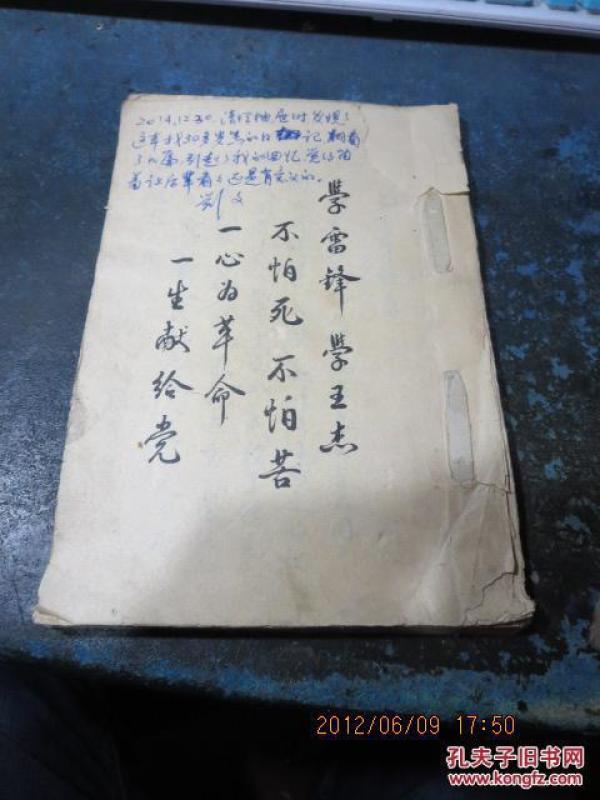 2014.12.30. 清理抽屉时发现了
这本我30多岁写的日记 翻看
了几篇,引起了我的回忆,觉得留
着让后辈看看还是有意义的。
刘
學雷锋 學王杰
不怕死 不怕苦
一心为革命
一生献给党
2012/06/09 17:50
孔夫子旧书网
www.kongfz.com